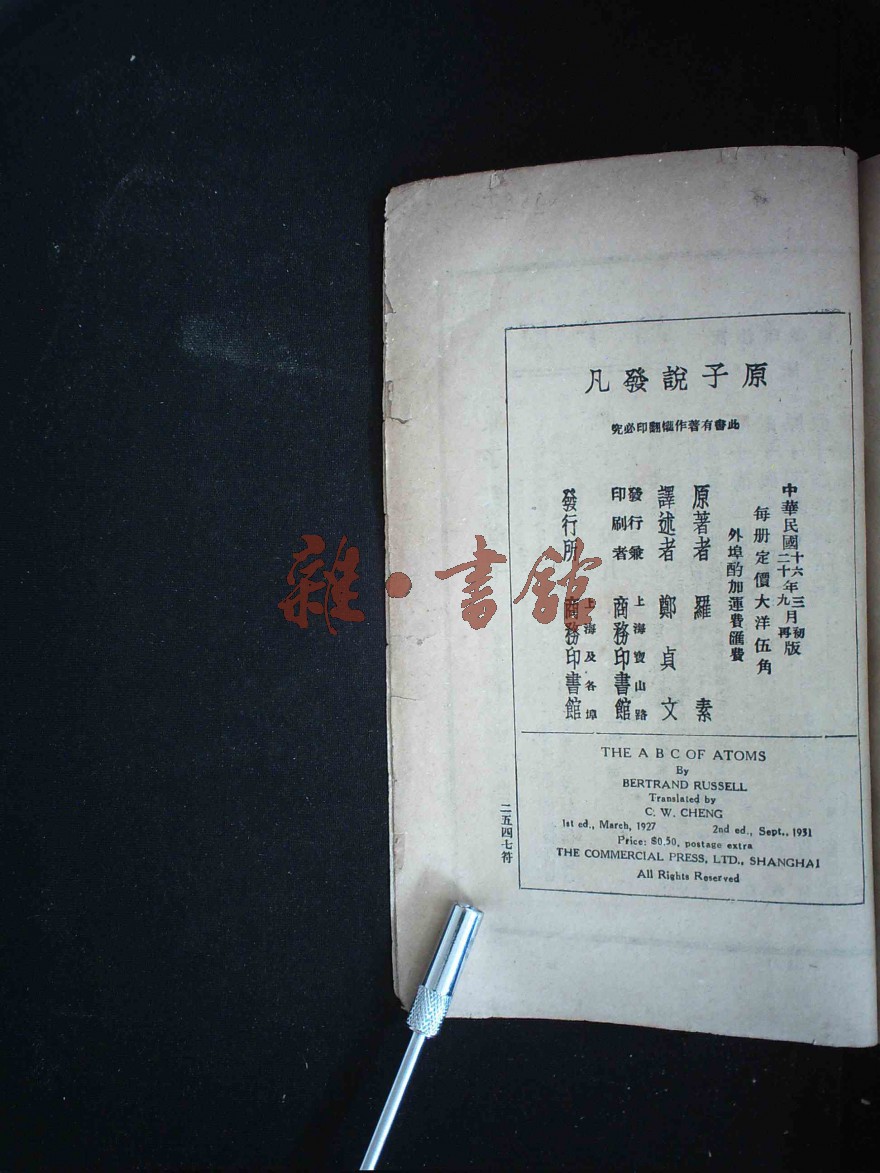 原子說發凡
此書有著作權翻印必究
中華民國十六年三月初版
二十年九月再版
每册定價大洋伍角
外埠酌加運費匯費
原著者 羅素
譯述者 鄭貞文
發行兼印刷者 上海寶山路 商務印書館
發行所 上海及各埠 商務印書館
二五四七符
THE A B C OF ATOMS
By
BERTRAND RUSSELL
Translated by
C. W. CHENG
1st ed., March, 1927 2nd ed., Sept., 1931
Price: $0.50, postage extra
THE COMMERCIAL PRESS, LTD., SHANGHAI
All Rights Reserved
雜·書館